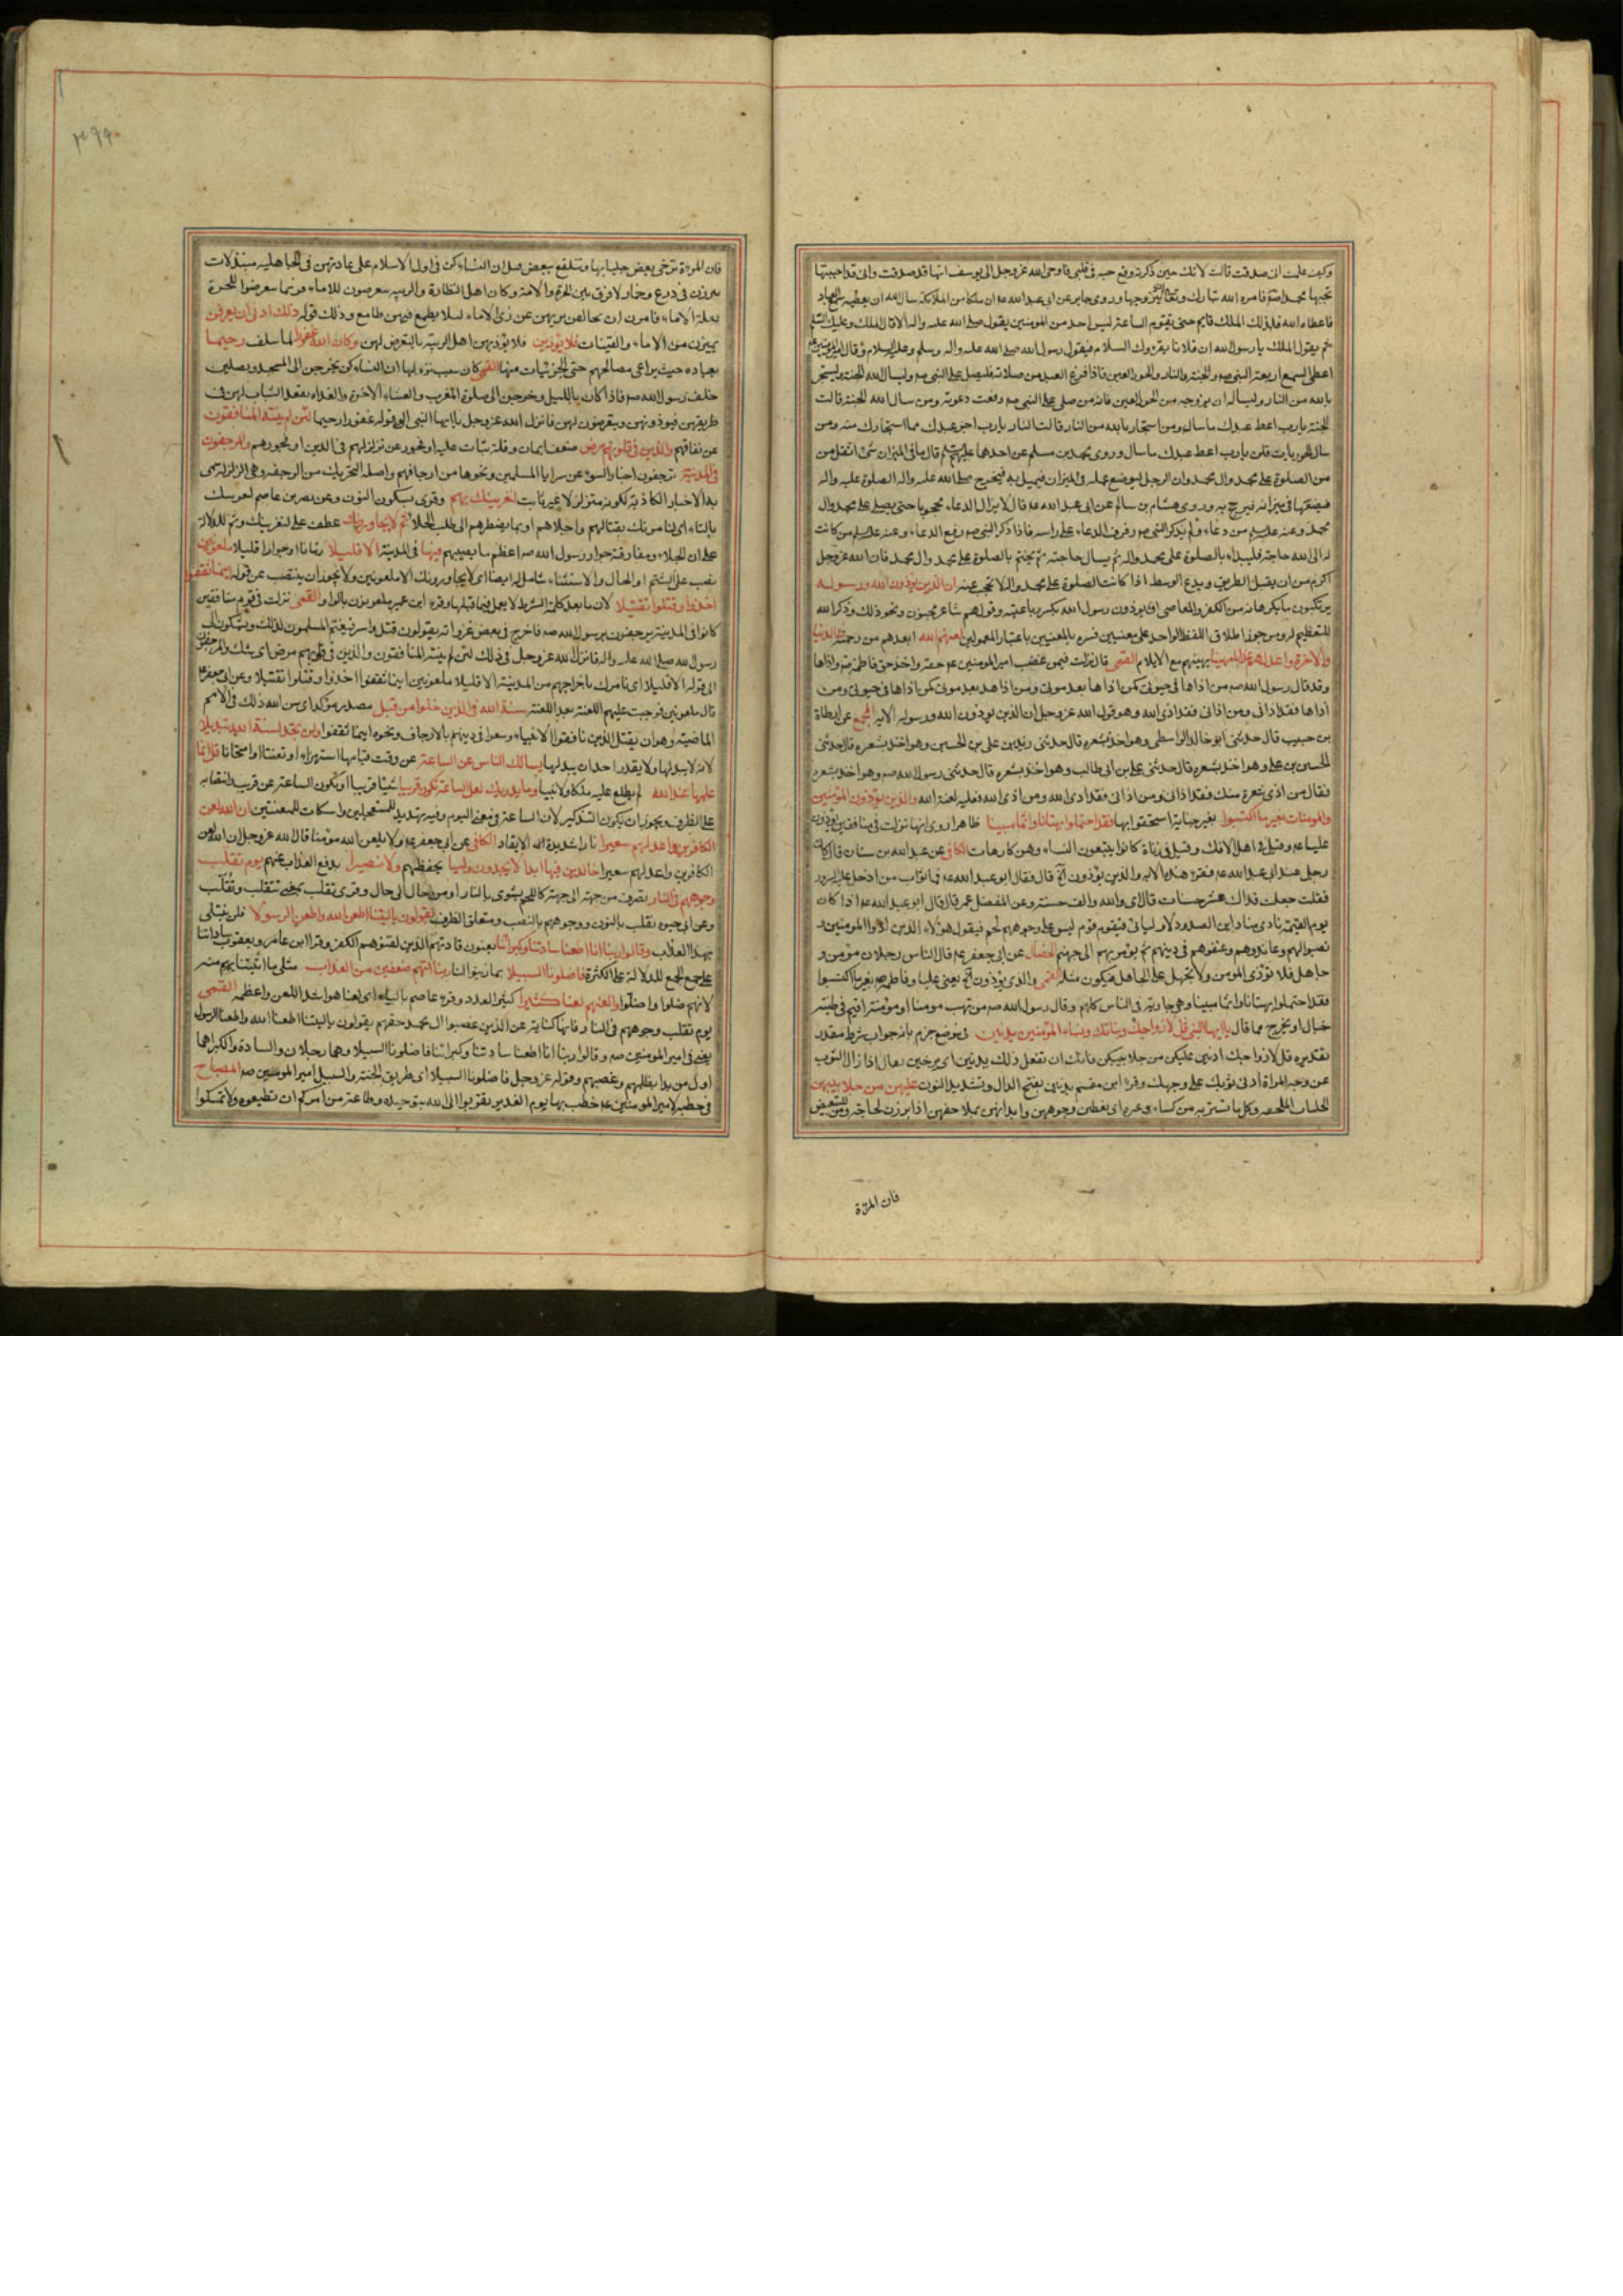 وكيف علمت اني صدقت قالت لانك حين ذكرته وقع حبه في قلبي فاوحى الله عز وجل الى يوسف انها قد صدقت واني قد احببتها
بحبها محمدا صم فامره الله تبارك وتعالى ان يتزوجها وروى جابر عن ابي عبد الله عم ان ملكا من الملائكة سال الله ان يعطيه سمع العباد
فاعطاه الله فذلك الملك قايم حتى تقوم الساعة ليس احد من المومنين يقول صلى الله عليه واله الا قال الملك وعليك السلم
ثم يقول الملك يا رسول الله ان فلانا يقرؤك السلام فيقول رسول الله صلى الله عليه واله وسلم وعليه السلام وقال امير المومنين عم
اعطي السمع اربعة النبي صم والجنة والنار والحور العين فاذا فرغ العبد من صلاته فليصل على النبي صم وليسال الله الجنة وليستجر
بالله من النار وليساله ان يزوجه من الحور العين فانه من صلى على النبي صم رفعت دعوته ومن سال الله الجنة قالت
الجنة يا رب اعط عبدك ما سال ومن استجار بالله من النار قالت النار يا رب اجر عبدك مما استجارك منه ومن
سال الحور العين قلن يا رب اعط عبدك ما سال وروى محمد بن مسلم عن احدهما عليهما السلم قال ما في الميزان شئ اثقل من
من الصلوة على محمد وال محمد وان الرجل ليوضع عمله في الميزان فيميل به فيخرج صلى الله عليه واله الصلوة عليه واله
فيضعها في ميزانه فيرجح به وروى هشام بن سالم عن ابي عبد الله عم قال لا يزال الدعاء محجوبا حتى يصلى على محمد وال
محمد وعنه عليه السلم من دعاء ولم يذكر النبي صم رفرف الدعاء على راسه فاذا ذكر النبي صم رفع الدعاء وعنه عليه السلم من كانت
له الى الله حاجة فليبداء بالصلوة على محمد واله ثم يسال حاجته ثم يختم بالصلوة على محمد وال محمد فان الله عز وجل
اكرم من ان يقبل الطرفين ويدع الوسط اذا كانت الصلوة على محمد واله لا تحجب عنه ان الذين يؤذون الله ورسوله
يرتكبون ما يكرهانه من الكفر والمعاصي او يؤذون رسول الله بكسر رباعيته وقولهم شاعر مجنون ونحو ذلك وذكر الله
للتعظيم له ومن جوز اطلاق اللفظ الواحد على معنيين فسره بالمعنيين باعتبار المعمولين لعنهم الله ابعدهم من رحمته في الدنيا
والاخرة واعد لهم عذابا مهينا يهينهم مع الايلام القمي قال نزلت فيمن غصب امير المومنين عم حقه واخذ حق فاطمة عم واذاها
وقد قال رسول الله صم من اذاها في حيوتي كمن اذاها بعد موتي ومن اذاها بعد موتي كمن اذاها في حيوتي ومن
اذاها فقد اذاني ومن اذاني فقد اذى الله وهو قول الله عز وجل ان الذين يؤذون الله ورسوله الاية المجمع عن ارطاة
بن حبيب قال حدثني ابو خالد الواسطي وهو اخذ بشعره قال حدثني زيد بن علي بن الحسين وهو اخذ بشعره قال حدثني
الحسين بن علي وهو اخذ بشعره قال حدثني علي بن ابي طالب وهو اخذ بشعره قال حدثني رسول الله صم وهو اخذ بشعره
فقال من اذى شعرة منك فقد اذاني ومن اذاني فقد اذى الله ومن اذى الله فعليه لعنة الله والذين يؤذون المؤمنين
والمومنات بغير ما اكتسبوا بغير جناية استحقوا بها فقد احتملوا بهتانا واثما مبينا ظاهرا روي انها نزلت في منافقين يؤذون
عليا عم وقيل في اهل الافك وقيل في زناة كانوا يتبعون النساء وهن كارهات الكافي عن عبد الله بن سنان قال كان
رجل عند ابي عبد الله عم فقرء هذه الاية والذين يؤذون آه قال فقال ابو عبد الله عم فما ثواب من ادخل عليه السرور
فقلت جعلت فداك عشر حسنات قال اي والله والف حسنة وعن المفضل عمر قال قال ابو عبد الله عم اذا كان
يوم القيمة نادى مناد اين الصدود لاوليائي فيقوم قوم ليس على وجوههم لحم فيقول هؤلاء الذين اذوا المومنين و
نصبوا لهم وعاندوهم وعنفوهم في دينهم ثم يؤمر بهم الى جهنم الخصال عن ابي جعفر عم قال الناس رجلان مؤمن و
جاهل فلا تؤذي المومن ولا تجهل على الجاهل فتكون مثله القمي والذين يؤذون آه يعني عليا وفاطمة بغير ما اكتسبوا
فقد احتملوا بهتانا واثما مبينا وهي جارية في الناس كلهم وقال رسول الله صم من بهت مومنا او مؤمنة اقيم في طينة
خبال او يخرج مما قال يا ايها النبي قل لازواجك وبناتك ونساء المؤمنين يدنين في موضع جزم بانه جواب شرط مقدر
تقديره قل لازواجك ادنين عليكن من جلابيبكن فانك ان تفعل ذلك يدنين اي يرخين يقال اذا زال الثوب
عن وجه المراة ادني ثوبك على وجهك وقرء ابن مقسم يدنين بفتح الدال وتشديد النون عليهن من جلابيبهن
الجلباب الملحفة وكل ما تستتر به من كساء وغيره اي يغطين وجوههن وابدانهن بملاحفهن اذا برزن لحاجة ومن للتبعيض
فان المرءة
٣٩٩
فان المرءة ترخي بعض جلبابها وتتلفع ببعض قيل ان النساء كن في اول الاسلام على عادتهن في الجاهلية متبذلات
يبرزن في درع وخمار لا فرق بين الحرة والامة وكان اهل النظارة والريبة يتعرضون للاماء وربما تعرضوا للحرة
بعلة الاماء فامرن ان يخالفن بزيهن عن زي الاماء لئلا يطمع فيهن طامع وذلك قوله ذلك ادنى ان يعرفن
يميزن من الاماء والقينات فلا يؤذين فلا يؤذيهن اهل الريبة بالتعرض لهن وكان الله غفورا لما سلف رحيما
بعباده حيث يراعي مصالحهم حتى الجزئيات منها القمي كان سبب نزولها ان النساء كن يخرجن الى المسجد ويصلين
خلف رسول الله صم فاذا كان بالليل وخرجن الى صلوة المغرب والعشاء الاخرة والغداة يقعد الشباب لهن في
طريقهن فيؤذونهن ويتعرضون لهن فانزل الله عز وجل يا ايها النبي الى قوله غفورا رحيما لئن لم ينته المنافقون
عن نفاقهم والذين في قلوبهم مرض ضعف ايمان وقلة ثبات عليه او فجور عن تزلزلهم في الدين او فجورهم والمرجفون
في المدينة يرجفون اخبار السوء عن سرايا المسلمين ونحوها من ارجافهم واصله التحريك من الرجفة وهي الزلزلة سمي
به الاخبار الكاذبة لكونه متزلزلا غير ثابت لنغرينك بهم وقرئ بسكون النون وعن نصر بن عاصم لغرينك
بالتاء اي لنامرنك بقتالهم واجلائهم او بما يضطرهم الى طلب الجلاء ثم لا يجاورونك عطف على لنغرينك وثم للدلالة
على ان الجلاء ومفارقة جوار رسول الله صم اعظم ما يصيبهم فيها في المدينة الا قليلا زمانا او جوارا قليلا ملعونين
نصب على الشتم او الحال والاستثناء شامل له ايضا اي لا يجاورونك الا ملعونين ولا يجوز ان ينتصب عن قوله اينما ثقفوا
اخذوا وقتلوا تقتيلا لان ما بعد كلمة الشرط لا يعمل فيما قبلها وقرء ابن عمير ملعونون بالواو القمي نزلت في قوم منافقين
كانوا في المدينة يرجفون برسول الله صم فاخرج في بعض غزواته يقولون قتل واسر فيغتم المسلمون لذلك ويشكون الى
رسول الله صلى الله عليه واله فانزل الله عز وجل في ذلك لئن لم ينته المنافقون والذين في قلوبهم مرض اي شك والمرجفون
الى قوله الا قليلا اي نامرك باخراجهم من المدينة الا قليلا ملعونين اينما ثقفوا اخذوا وقتلوا تقتيلا وعن ابي جعفر عم
قال ملعونين فوجبت عليهم اللعنة بعد اللعنة سنة الله في الذين خلوا من قبل مصدر مؤكد اي سن الله ذلك في الامم
الماضية وهو ان يقتل الذين نافقوا الانبياء وسعوا في دينهم بالارجاف ونحوه اينما ثقفوا ولن تجد لسنة الله تبديلا
لانه لا يبدلها ولا يقدر احد ان يبدلها يسالك الناس عن الساعة عن وقت قيامها استهزاء او تعنتا او امتحانا قل انما
علمها عند الله لم يطلع عليه ملكا ولا نبيا وما يدريك لعل الساعة تكون قريبا شيئا قريبا او تكون الساعة عن قريب وانتصابه
على الظرف ويجوز ان يكون التذكير لان الساعة في معنى اليوم وفيه تهديد للمستعجلين واسكات للمتعنتين ان الله لعن
الكافرين واعد لهم سعيرا نارا شديدة الايقاد الكافي عن ابي جعفر عم ولا يلعن الله مؤمنا قال الله عز وجل ان الله لعن
الكافرين واعد لهم سعيرا خالدين فيها ابدا لا يجدون وليا يحفظهم ولا نصيرا يدفع العذاب عنهم يوم تقلب
وجوههم في النار تصرف من جهة الى جهة كاللحم يشوى بالنار او من حال الى حال وقرئ تقلب بمعنى تتقلب وتُقلّب
وعن ابي حيوة نقلب بالنون ووجوههم بالنصب ومتعلق الظرف يقولون يا ليتنا اطعنا الله واطعنا الرسولا فلن نبتلى
بهذا العذاب وقالوا ربنا انا اطعنا سادتنا وكبراءنا يعنون قادتهم الذين لقنوهم الكفر وقرا ابن عامر ويعقوب ساداتنا
على جمع الجمع للدلالة على الكثرة فاضلونا السبيلا بما زينوا لنا ربنا اتهم ضعفين من العذاب مثلي ما اتيتنا منه
لانهم ضلوا واضلوا والعنهم لعنا كثيرا كثير العدد وقرء عاصم بالباء اي لعنا هو اشد اللعن واعظمه القمي
يوم تقلب وجوههم في النار فانها كناية عن الذين غصبوا ال محمد حقهم يقولون يا ليتنا اطعنا الله واطعنا الرسول
يعني في امير المومنين صم وقالوا ربنا انا اطعنا سادتنا وكبرائنا فاضلونا السبيلا وهما رجلان والسادة والكبراء هما
اول من بدا بظلمهم وغصبهم وقوله عز وجل فاضلونا السبيلا اي طريق الجنة والسبيل امير المومنين صم المصباح
في خطبة لامير المومنين عم خطب بها يوم الغدير تقربوا الى الله بتوحيده وطاعة من امركم ان تطيعوه ولا تمسكوا